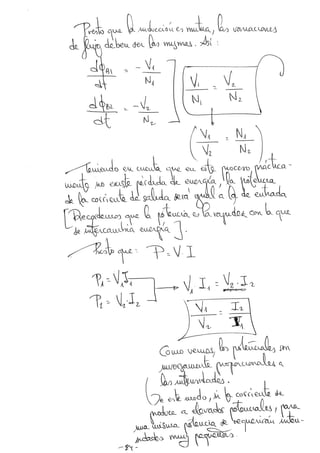 Puesto que la inducción es mutua, las variaciones
de flujo deben ser las mismas. Así:
dϕB1/dt = -V1/N1
dϕB2/dt = -V2/N2
V1/N1 = V2/N2
(V1/V2 = N1/N2)
Teniendo en cuenta que en este proceso práctica-
mente no existe pérdida de energía, la potencia
de la corriente de salida será igual a la de entrada
[Recordemos que la potencia es la rapidez con la que
se intercambia energía].
Puesto que: P = V I
P1 = V1 I1
P2 = V2 I2
V1 I1 = V2 I2
V1/V2 = I2/I1
Como vemos, los potenciales son
inversamente proporcionales a
las intensidades.
De este modo, si la corriente se
produce a elevados potenciales, para
una misma potencia se requerirán inten-
sidades muy pequeñas